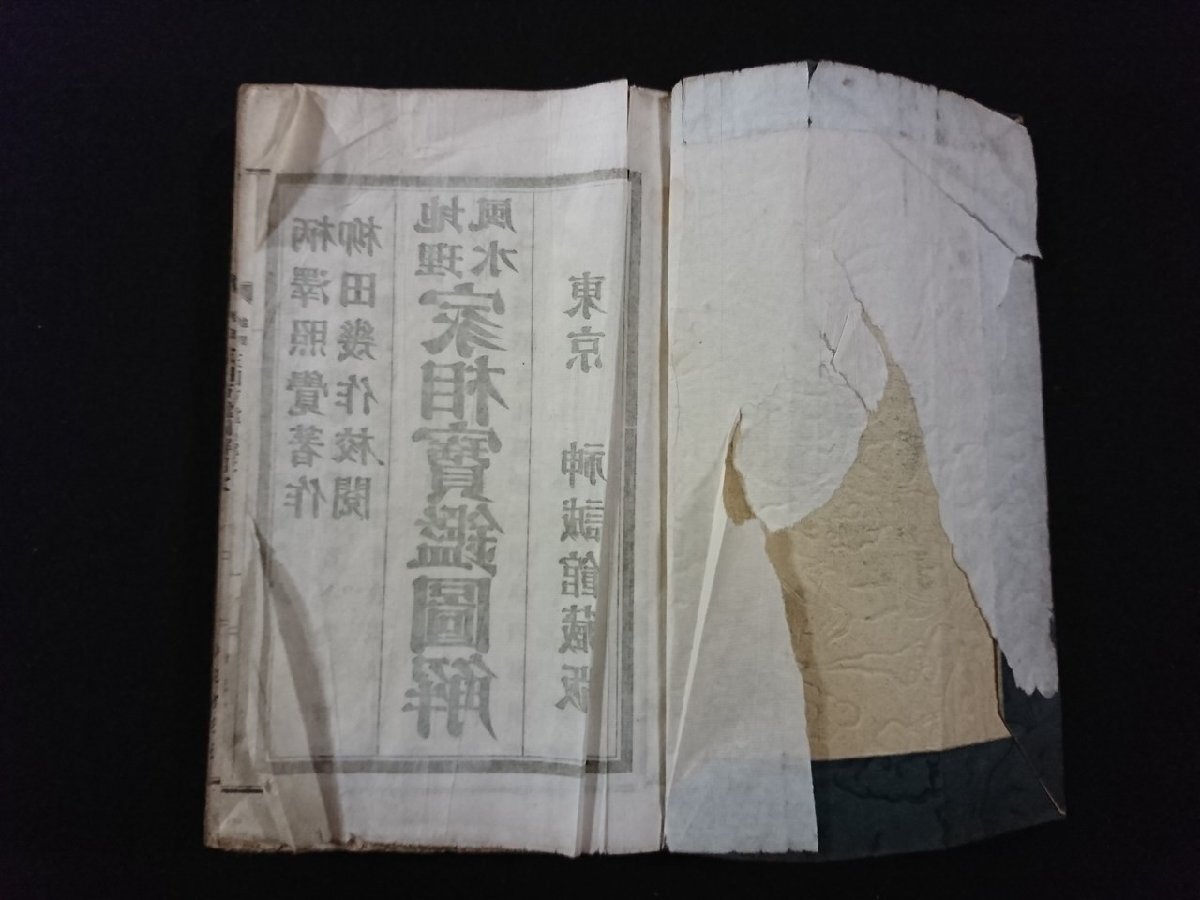 柄澤照覺著作
柳田幾作校閲
地理
風水
家相寶鑑圖解
東京 神誠館藏版